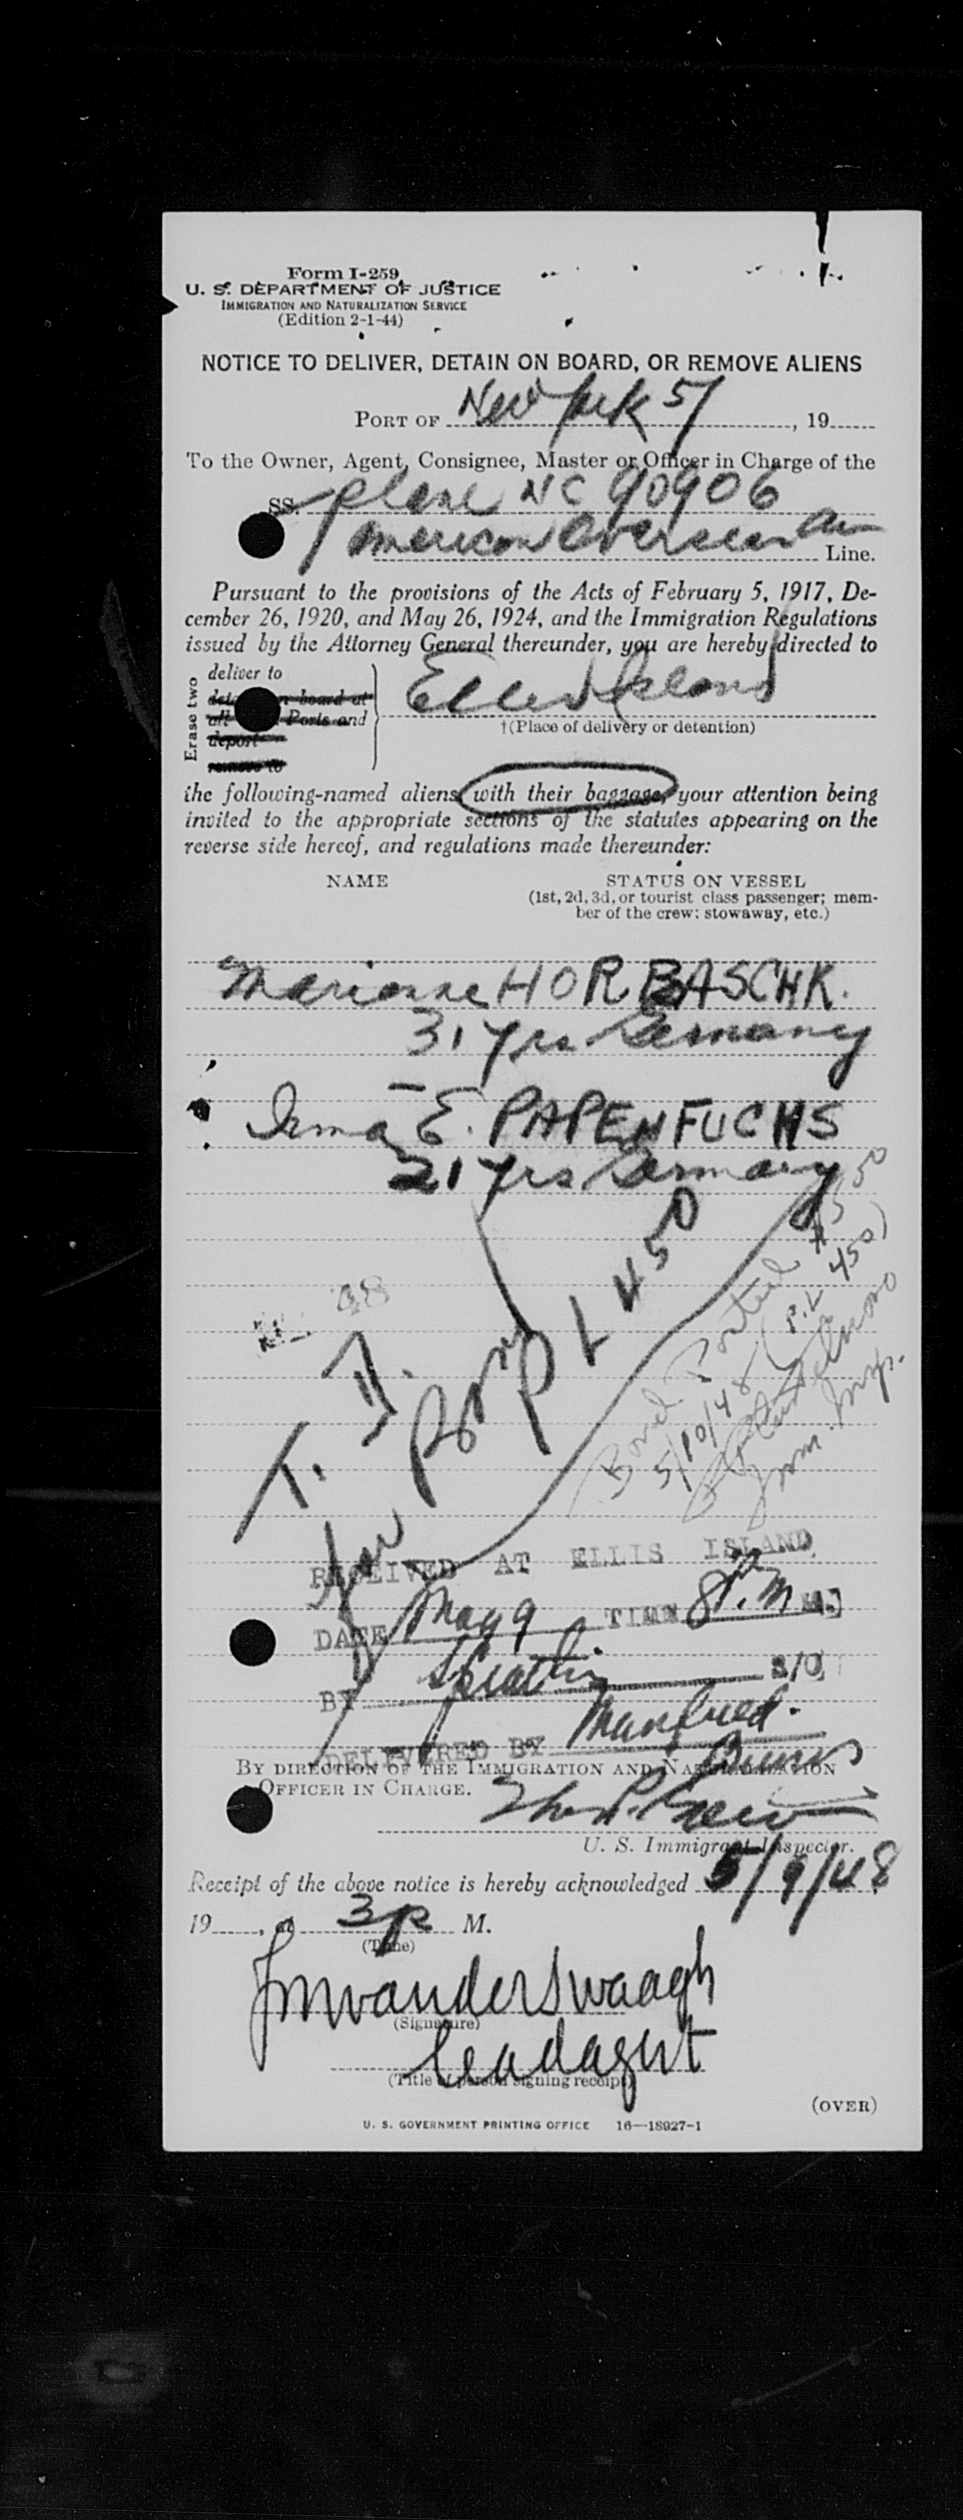 Form I-259
U. S. DEPARTMENT OF JUSTICE
IMMIGRATION AND NATURALIZATION SERVICE
(Edition 2-1-44)
NOTICE TO DELIVER, DETAIN ON BOARD, OR REMOVE ALIENS
PORT OF New York 5/ , 19
To the Owner, Agent, Consignee, Master or Officer in Charge of the
SS. plane NC 90906
American Overseas Air Line.
Pursuant to the provisions of the Acts of February 5, 1917, De-
cember 26, 1920, and May 26, 1924, and the Immigration Regulations
issued by the Attorney General thereunder, you are hereby directed to
Erase two
deliver to
n board at
all Ports and
deport
remove to
Ellis Island
†(Place of delivery or detention)
the following-named aliens with their baggage, your attention being
invited to the appropriate sections of the statutes appearing on the
reverse side hereof, and regulations made thereunder:
NAME STATUS ON VESSEL
(1st, 2d, 3d, or tourist class passenger; mem-
ber of the crew; stowaway, etc.)
Marianne HORBASCHK.
31 yrs Germany
Irma E. PAPENFUCHS
21 yrs Germany
T. D.
for Bond
PL 450
Bond Posted
5/10/48 (P.L 450)
Imm. Insp.
RECEIVED AT ELLIS ISLAND
DATE May 9 TIME 8 P.M M.
BY
DELIVERED BY Manfred
BY DIRECTION OF THE IMMIGRATION AND NATURALIZATION
OFFICER IN CHARGE.
U. S. Immigrant Inspector.
Receipt of the above notice is hereby acknowledged 5/9/48
19 , at 3 p M.
(Time)
(Signature)
leadagent
(Title of person signing receipt)
(OVER)
U. S. GOVERNMENT PRINTING OFFICE 16—18927-1